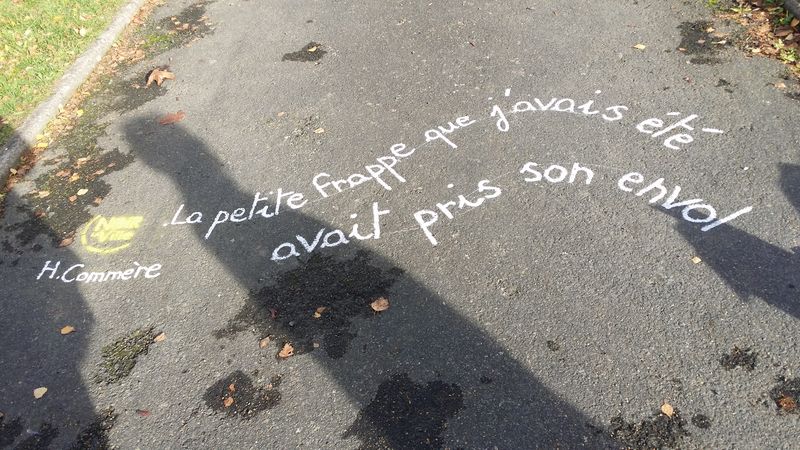 .La petite frappe que j'avais été
avait pris son envol
H. Commère